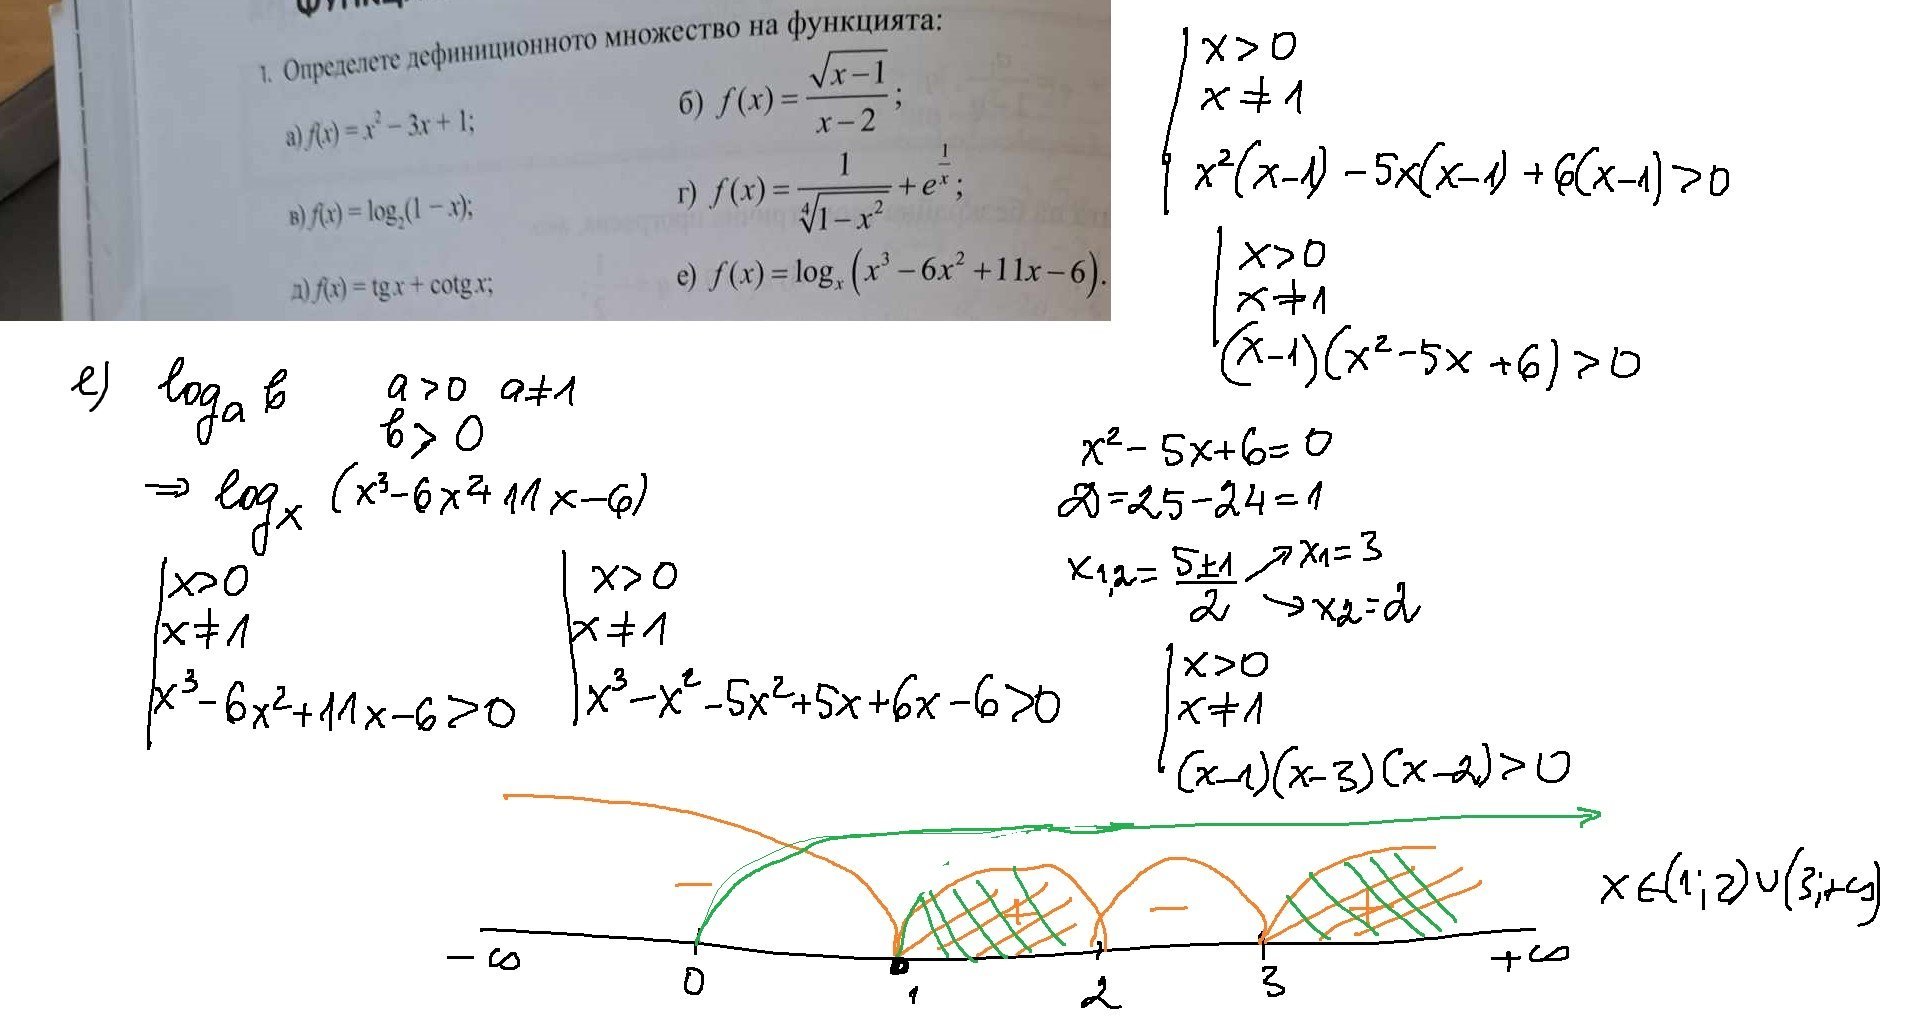 1. Определете дефиниционното множество на функцията:
а) f(x) = x² − 3x + 1;
б) f(x) = √(x−1) / (x−2);
в) f(x) = log₂(1 − x);
г) f(x) = 1 / ∜(1−x²) + e^(1/x);
д) f(x) = tg x + cotg x;
е) f(x) = logₓ (x³ − 6x² + 11x − 6).
е) logₐ b a>0 a≠1
b>0
⇒ logₓ (x³−6x²+11x−6)
x>0
x≠1
x³−6x²+11x−6>0
x>0
x≠1
x³−x²−5x²+5x+6x−6>0
x>0
x≠1
x²(x−1)−5x(x−1)+6(x−1)>0
x>0
x≠1
(x−1)(x²−5x+6)>0
x²−5x+6=0
D=25−24=1
x₁,₂= (5±1)/2 → x₁=3
→ x₂=2
x>0
x≠1
(x−1)(x−3)(x−2)>0
− + − +
−∞ 0 1 2 3 +∞
x∈(1;2)∪(3;+∞)